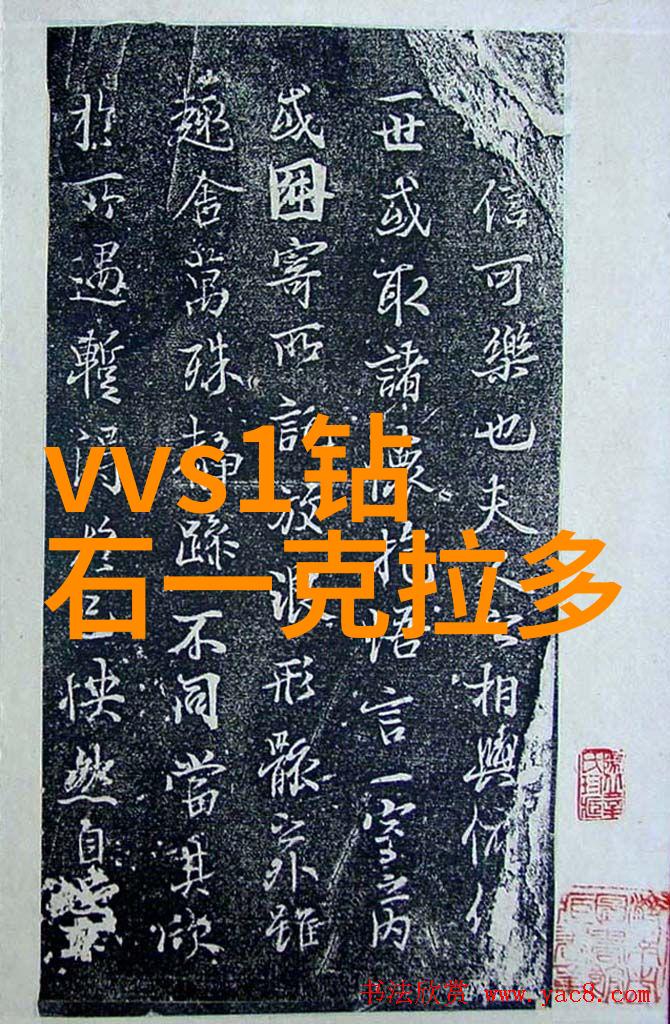 信可樂也夫人之相與俯仰
一世或取諸懷抱悟言一室之内
或因寄所託放浪形骸之外雖
趣舍萬殊靜躁不同當其欣
於所遇暫得於己怏然自
vvs1钻
石一克拉多
书法欣赏 www.yac8.com